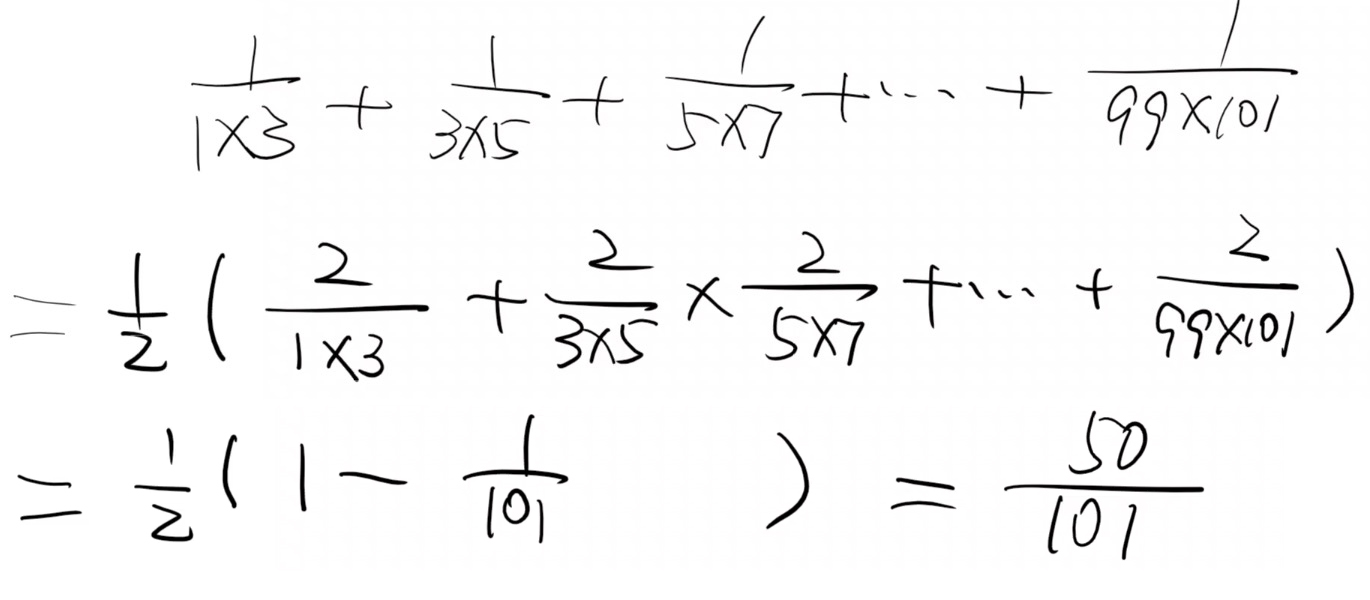 \frac{1}{1×3} + \frac{1}{3×5} + \frac{1}{5×7} + ··· + \frac{1}{99×101}
= \frac{1}{2} ( \frac{2}{1×3} + \frac{2}{3×5} × \frac{2}{5×7} + ··· + \frac{2}{99×101} )
= \frac{1}{2} ( 1 - \frac{1}{101} ) = \frac{50}{101}